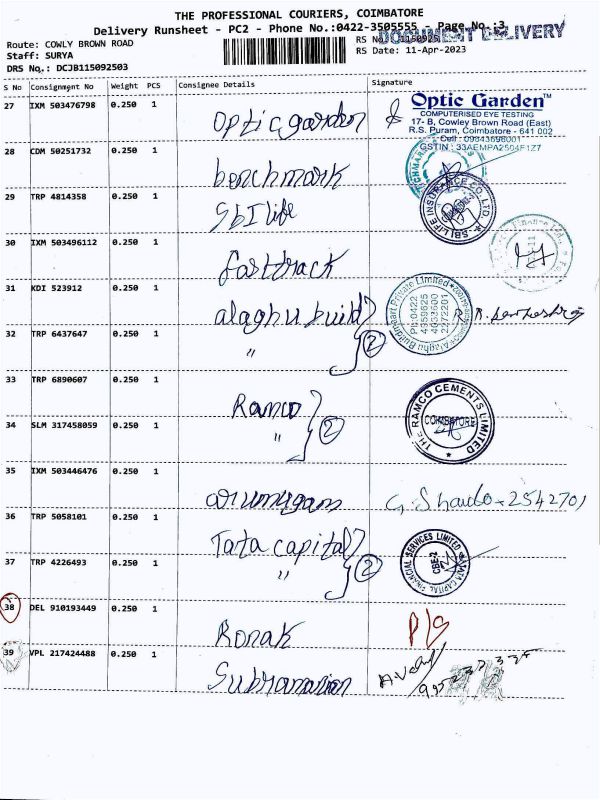 THE PROFESSIONAL COURIERS, COIMBATORE
Delivery Runsheet - PC2 - Phone No.:0422-3505555 - Page No.:3
DOCUMENT DELIVERY
Route: COWLY BROWN ROAD
Staff: SURYA
DRS No.: DCJB115092503
RS No.: 1150925
RS Date: 11-Apr-2023
S No Consignment No Weight PCS Consignee Details Signature
27 IXM 503476798 0.250 1 Optic garden
Optic Garden™
COMPUTERISED EYE TESTING
17- B, Cowley Brown Road (East)
R.S. Puram, Coimbatore - 641 002
Cell : 09843698001
GSTIN : 33AEMPA2504F1Z7
28 CDM 50251732 0.250 1 benchmark
29 TRP 4814358 0.250 1 SbI life
SBI LIFE INSURANCE CO. LTD.
30 IXM 503496112 0.250 1 fasttrack
31 KDI 523912 0.250 1 alaghu build
Alaghu Buildmart Private Limited
PH:0422
4359625
4933600
2272201
32 TRP 6437647 0.250 1 " 2
33 TRP 6890607 0.250 1 Ramco
THE RAMCO CEMENTS LIMITED
COIMBATORE
34 SLM 317458059 0.250 1 " 2
35 IXM 503446476 0.250 1 arumugam
2542701
36 TRP 5058101 0.250 1 Tata capital
TATA CAPITAL FINANCIAL SERVICES LIMITED
CBE-2
37 TRP 4226493 0.250 1 " 2
38 DEL 910193449 0.250 1 Ronak
39 VPL 217424488 0.250 1 Subramanian